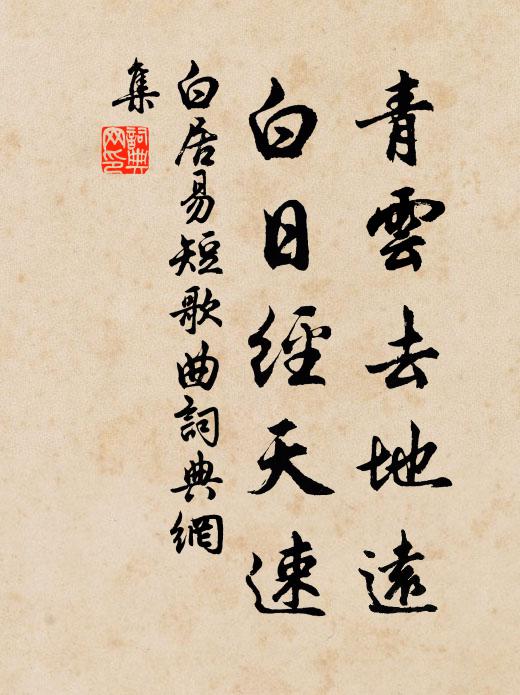 青雲去地遠
白日經天速
白居易短歌曲詞典網
集
詞典
网印